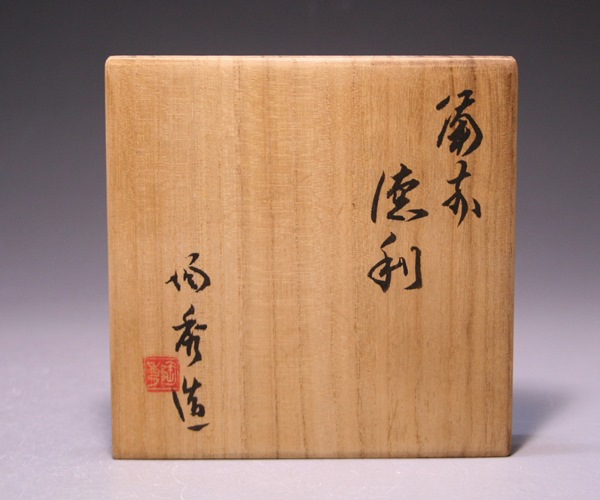 備前
徳利
陶秀造